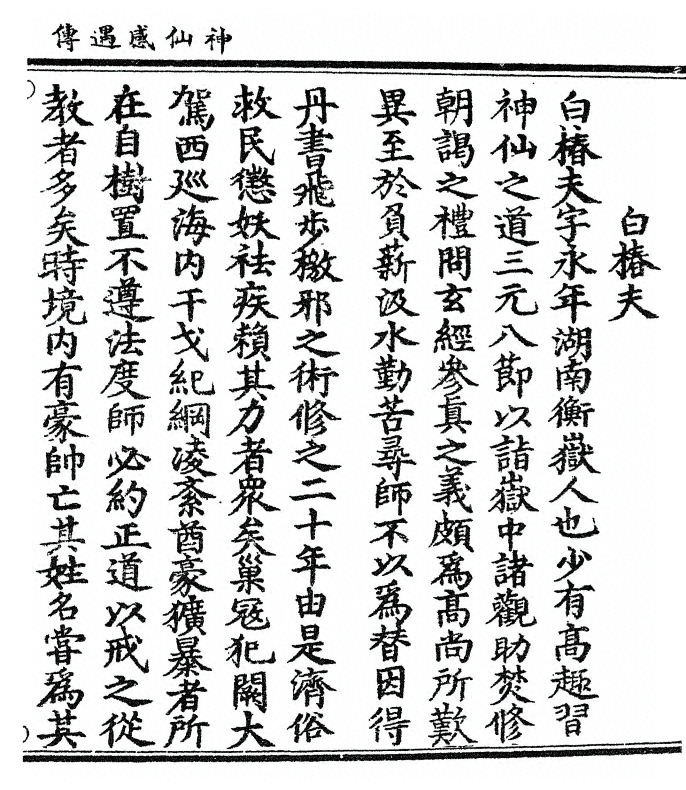 神仙感遇傳
白椿夫
白椿夫字永年湖南衡嶽人也少有高趣習
神仙之道三元八節以詣嶽中諸觀助焚修
朝謁之禮問玄經參真之義頗爲高尚所歎
異至於負薪汲水勤苦尋師不以爲替因得
丹書飛步檄邪之術修之二十年由是濟俗
救民懲妖祛疾賴其力者衆矣巢冦犯闕大
駕西廵海内干戈紀綱凌紊酋豪獷暴者所
在自樹置不遵法度師必約正道以戒之從
教者多矣時境内有豪帥亡其姓名嘗爲其